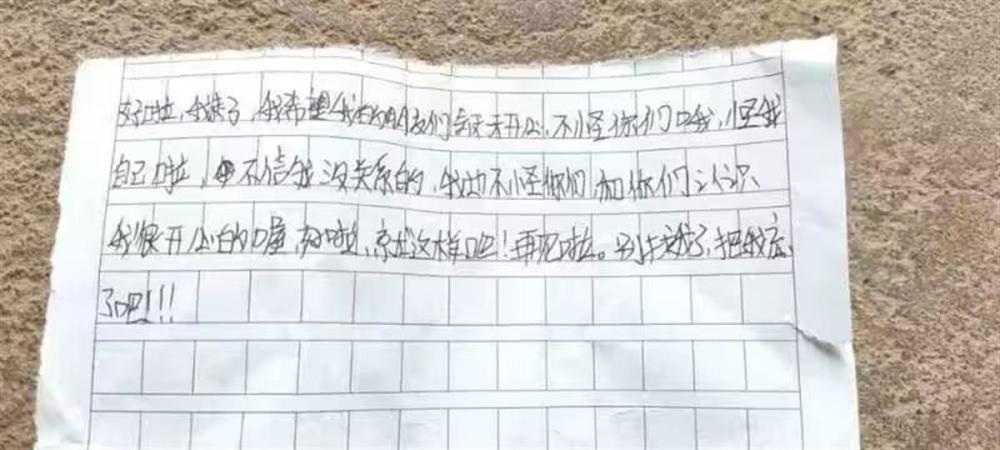 好啦,我走了,我希望我的朋友们每天开心,不怪你们口我,怪我
自己啦,不信我没关系的,我也不怪你们和你们认识
我很开心的喔,好啦,就这样吧!再见啦。别找我了,把我忘
了吧!!!